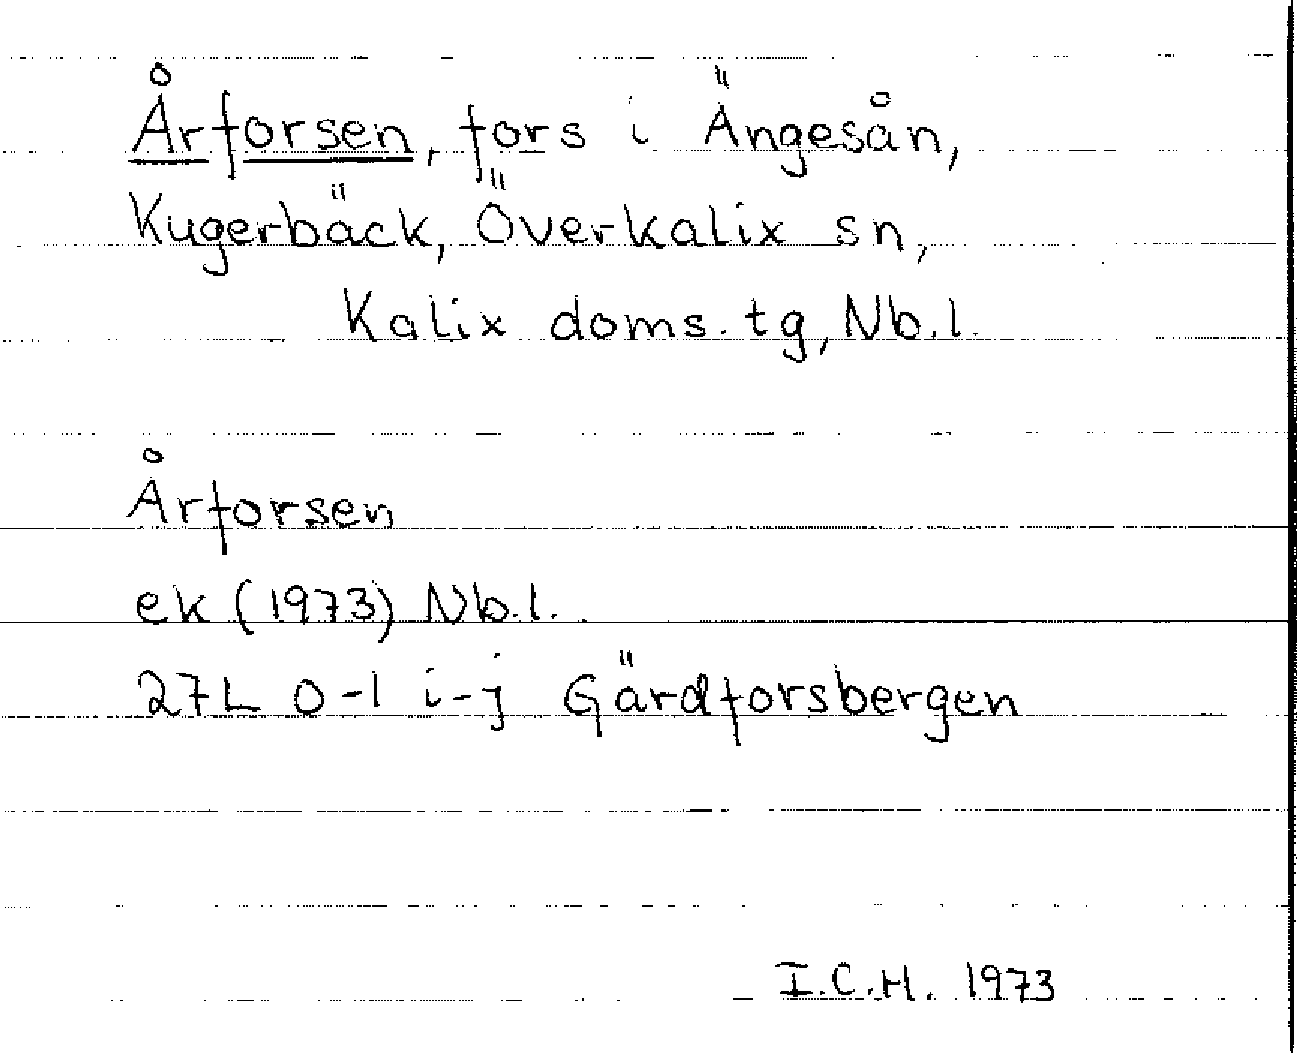 Årforsen, fors i Ängesån,
Kugerbäck, Överkalix sn,
Kalix doms. tg, Nb.l.
Årforsen
ek (1973) Nb.l.
27L 0-1 i-j Gärdforsbergen
I.C.H. 1973